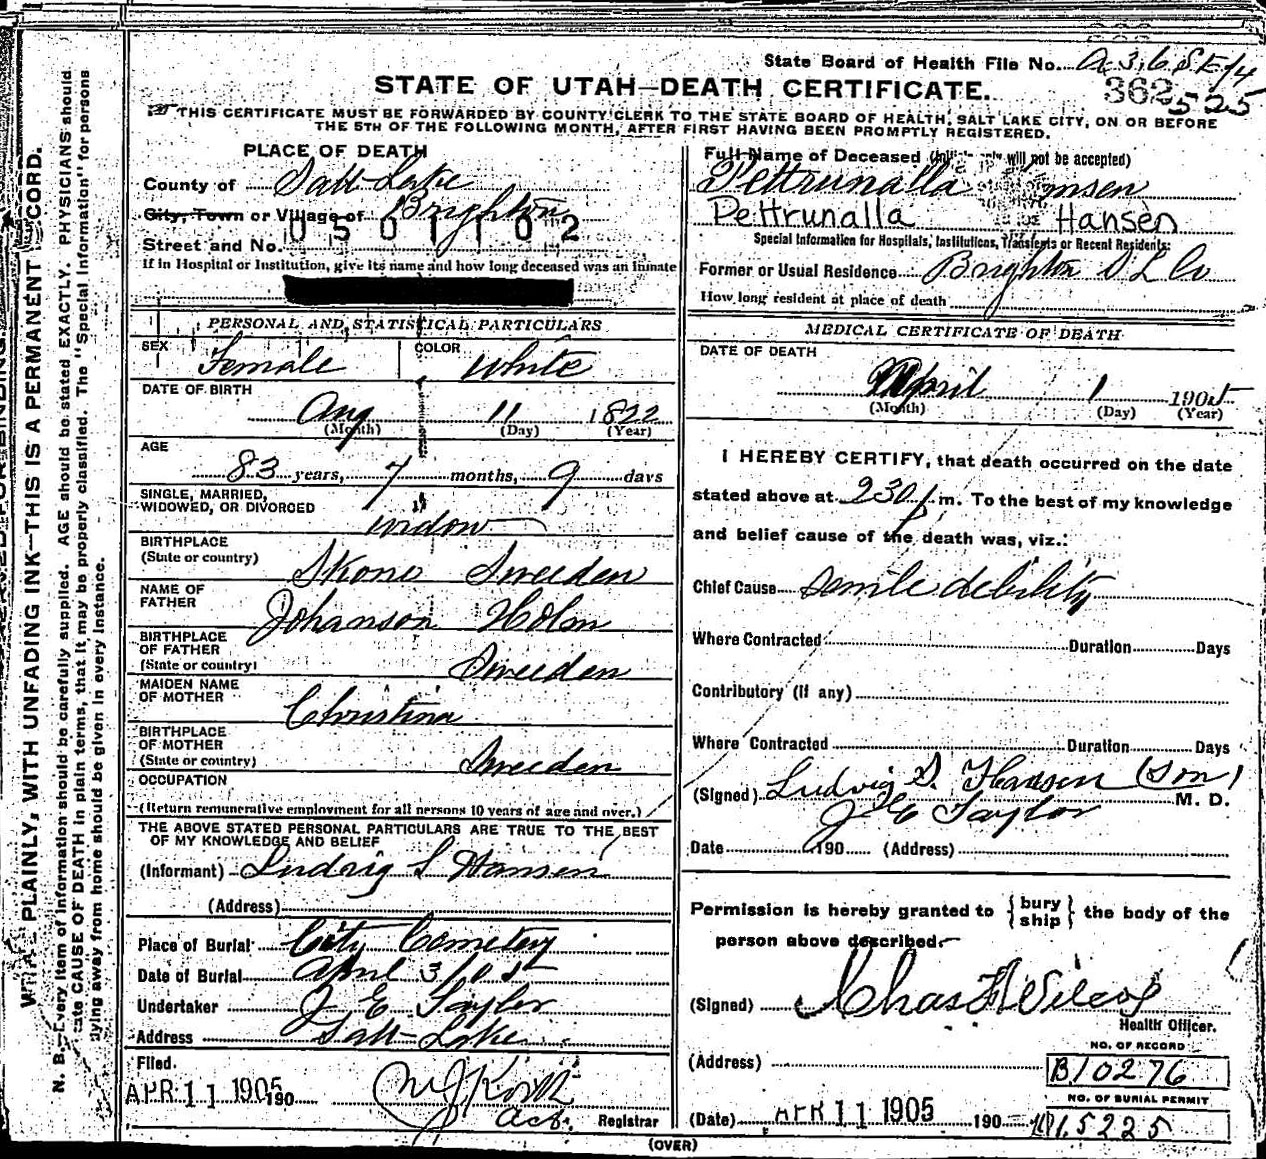 State Board of Health File No. a 36 St 14
STATE OF UTAH—DEATH CERTIFICATE.
362 525
THIS CERTIFICATE MUST BE FORWARDED BY COUNTY CLERK TO THE STATE BOARD OF HEALTH, SALT LAKE CITY, ON OR BEFORE
THE 5TH OF THE FOLLOWING MONTH, AFTER FIRST HAVING BEEN PROMPTLY REGISTERED.
PLACE OF DEATH
County of Salt Lake
City, Town or Village of Brighton
0501102
Street and No.
If in Hospital or Institution, give its name and how long deceased was an inmate
PERSONAL AND STATISTICAL PARTICULARS
SEX Female COLOR White
DATE OF BIRTH
Aug 11 1822
(Month) (Day) (Year)
AGE
83 years, 7 months, 9 days
SINGLE, MARRIED,
WIDOWED, OR DIVORCED widow
BIRTHPLACE
(State or country) Skone Sweeden
NAME OF
FATHER Johanson Holm
BIRTHPLACE
OF FATHER
(State or country) Sweeden
MAIDEN NAME
OF MOTHER Christina
BIRTHPLACE
OF MOTHER
(State or country) Sweeden
OCCUPATION
(Return remunerative employment for all persons 10 years of age and over.)
THE ABOVE STATED PERSONAL PARTICULARS ARE TRUE TO THE BEST
OF MY KNOWLEDGE AND BELIEF
(Informant) Ludvig S Hansen
(Address)
Place of Burial City Cemetery
Date of Burial April 3/05
Undertaker J E Taylor
Address Salt Lake
Filed.
APR 11 1905 190
Act. Registrar
Full Name of Deceased will not be accepted)
Pettrunalla
Pettrunalla Hansen
Special Information for Hospitals, Institutions, Transients or Recent Residents:
Former or Usual Residence Brighton S L Co
How long resident at place of death
MEDICAL CERTIFICATE OF DEATH
DATE OF DEATH
April 1 1905
(Month) (Day) (Year)
I HEREBY CERTIFY, that death occurred on the date
stated above at 230 p m. To the best of my knowledge
and belief cause of the death was, viz.:
Chief Cause Senile debility
Where Contracted Duration Days
Contributory (If any)
Where Contracted Duration Days
(Signed) Ludvig S. Hansen (Son)
J E Taylor M. D.
Date 190 (Address)
Permission is hereby granted to {bury ship} the body of the
person above described.
(Signed) Chas F Wilcox
Health Officer.
(Address)
NO. OF RECORD
B10276
NO. OF BURIAL PERMIT
(Date) APR 11 1905 190 15225
(OVER)
WRITE PLAINLY, WITH UNFADING INK—THIS IS A PERMANENT RECORD.
N. B.—Every item of information should be carefully supplied. AGE should be stated EXACTLY. PHYSICIANS should
state CAUSE OF DEATH in plain terms, that it may be properly classified. The "Special Information" for persons
dying away from home should be given in every instance.